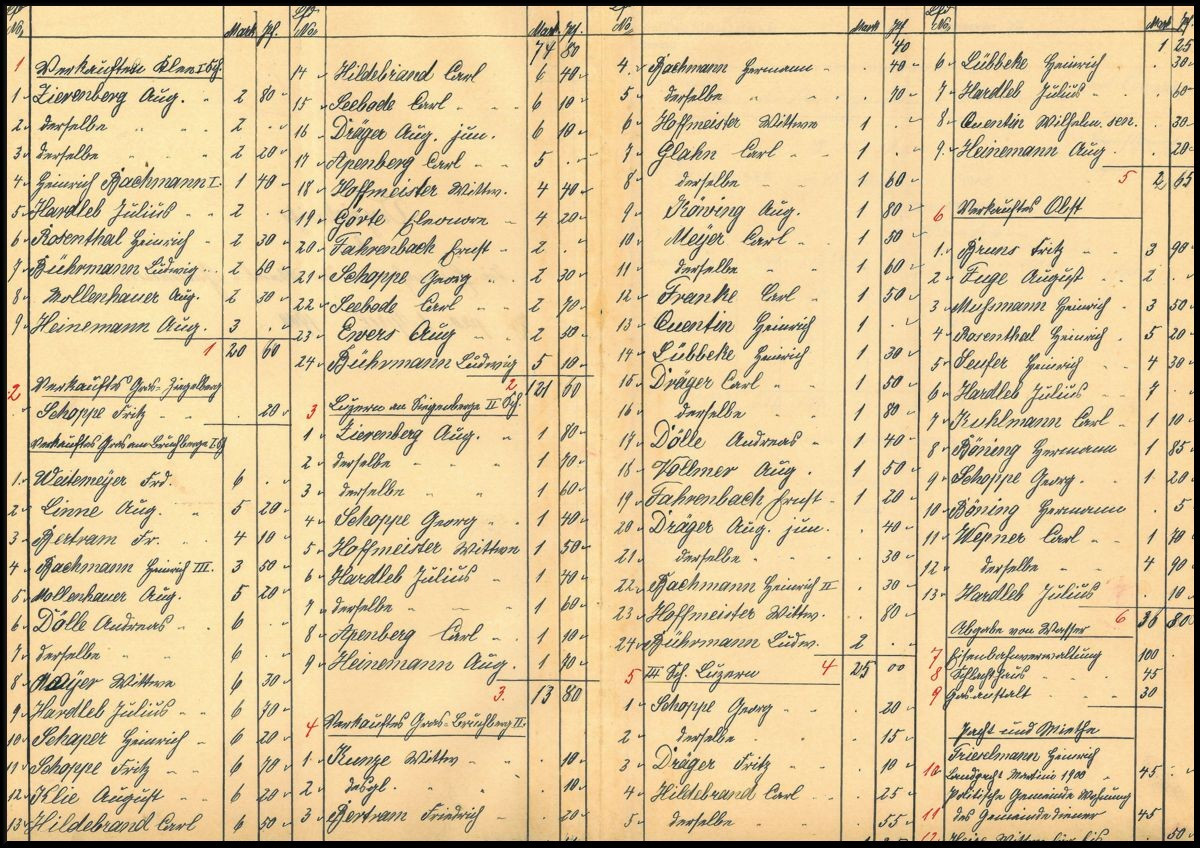 Lfd No. Mark Pf.
1 Verkauften Klee I Sch.
1 Zierenberg Aug. 2 80
2 derselbe 2 .
3 derselbe 2 20
4 Heinrich Bachmann I. 1 40
5 Hardleb Julius 2 .
6 Rosenthal Heinrich 2 30
7 Bührmann Ludwig 2 60
8 Mollenhauer Aug. 2 30
9 Heinemann Aug. 3 .
1 20 60
2 Verkauftes Gras-Ziegelberg
Schoppe Fritz 20
Verkauftes Gras am Bruchberge I Sch
1. Weitemeyer Frd. 6 .
2 Linne Aug. 5 20
3 Bertram Fr. 4 10
4 Bachmann Heinrich III. 3 50
5 Mollenhauer Aug. 5 20
6 Dölle Andreas 6 .
7 derselbe 6 .
8 Mayer Wittwe 6 30
9 Hardleb Julius 6 70
10 Schaper Heinrich 6 20
11 Schoppe Fritz 6 70
12 Klie August 6 20
13 Hildebrand Carl 6 50
Lfd No. Mark Pf.
74 80
14 Hildebrand Carl 6 40
15 Seebode Carl 6 10
16 Dräger Aug. jun. 6 10
17 Apenberg Carl 5 .
18 Hoffmeister Wittw. 4 40
19 Görte Eleonore 4 20
20 Fahrenbach Ernst 2 .
21 Schoppe Georg 2 30
22 Seebode Carl 2 70
23 Ewers Aug 2 50
24 Bührmann Ludwig 5 10
2 121 60
3 Luzern am Siegenberge II Sch.
1 Zierenberg Aug. 1 80
2 derselbe 1 70
3 derselbe 1 60
4 Schoppe Georg 1 40
5 Hoffmeister Wittwe 1 50
6 Hardleb Julius 1 40
7 derselbe 1 60
8 Apenberg Carl 1 10
9 Heinemann Aug. 1 70
3. 13 80
4 Verkauftes Gras-Bruchberg II.
1 Kunze Wittw 10
2 desgl. 10
3 Bertram Friedrich 20
Lfd No. Mark Pf.
40
4. Bachmann Hermann 40
5 derselbe 70
6 Hoffmeister Wittwe 1 .
7 Glahn Carl 1 .
8 derselbe 1 60
9 Röwing Aug. 1 80
10 Meyer Carl 1 50
11 derselbe 1 60
12 Franke Carl 1 50
13 Quentin Heinrich 1 .
14 Lübbeke Heinrich 1 30
15 Dräger Carl 1 50
16 derselbe 1 80
17 Dölle Andreas 1 40
18 Vollmer Aug. 1 50
19 Fahrenbach Ernst 1 20
20 Dräger Aug. jun. 40
21 derselbe 30
22 Bachmann Heinrich II 30
23 Hoffmeister Wittw. 80
24 Bührmann Ludw. 2 .
4 25 00
5 III Sch. Luzern
1 Schoppe Georg 20
2 derselbe 15
3 Dräger Fritz 10
4 Hildebrand Carl 25
5 derselbe 55
Lfd No. Mark Pf.
1 25
6 Lübbeke Heinrich 30
7 Hardleb Julius 60
8 Quentin Wilhelm. sen. 30
9. Heinemann Aug 20
5 2 65
6 Verkauftes Obst
1. Bruns Fritz 3 90
2 Fuge August 2 .
3 Mußmann Heinrich 3 50
4 Rosenthal Heinrich 5 20
5 Seufer Heinrich 4 30
6 Hardleb Julius 7 .
7 Kuhlmann Carl 1 10
8 Böning Hermann 1 85
9 Schoppe Georg. 1 20
10 Böning Hermann 5
11 Wepner Carl 1 70
12 derselbe 4 90
13 Hardleb Julius 10
6 36 80
Abgabe von Wasser
7 Eisenbahnverwaltung 100 .
8 Schlachthaus 45
9 Gasanstalt 30
Pacht und Miethe
Frieselmann Heinrich
10 Landpacht Martini 1900 45
Politische Gemeinde Wohnung
11 des Gemeindediener 45
50